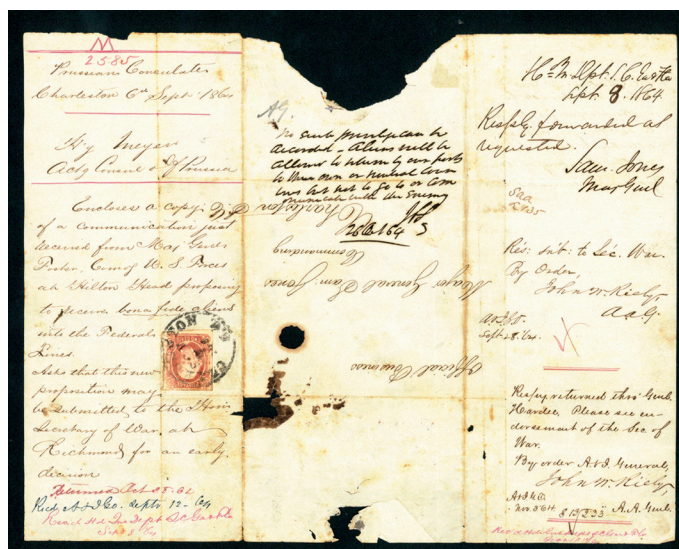 M
2585
Prussian Consulate
Charleston 6th Sept 1864
Hy Meyer
Actg Consul of Prussia
Encloses a copy
of a communication just
received from Maj Genl
Foster, Comg U. S. Forces
at Hilton Head proposing
to receive bona fide aliens
into the Federal
Lines.
Asks that this new
proposition may
be submitted to the Hon
Secretary of War, at
Richmond for an early
decision
Returned Oct 28. 64
Recd A & I Go. Septr 12 - 64
Sept 8/64
No such principle can be
accorded - Aliens will be
allowed to return by our ports
to their own or neutral
but not to go to or com
municate with the Enemy
Charleston
Commanding
Major General Sam. Jones
Official Business
Hd Qrs Dept. S. C. Ga & Fla
Sept. 8. 1864
Respy. forwarded as
requested.
Sam. Jones
Maj Genl
Res: sub: to Sec. War.
By Order,
John W. Riely,
A A G
A & I G O.
Sept 28. /64
Respy returned thro' Genl.
Hardee. Please see en-
dorsement of the Sec. of
War.
By order A. & I. General,
John W. Riely,
A & I G O.
Nov. 3d 64
A. A. Genl.